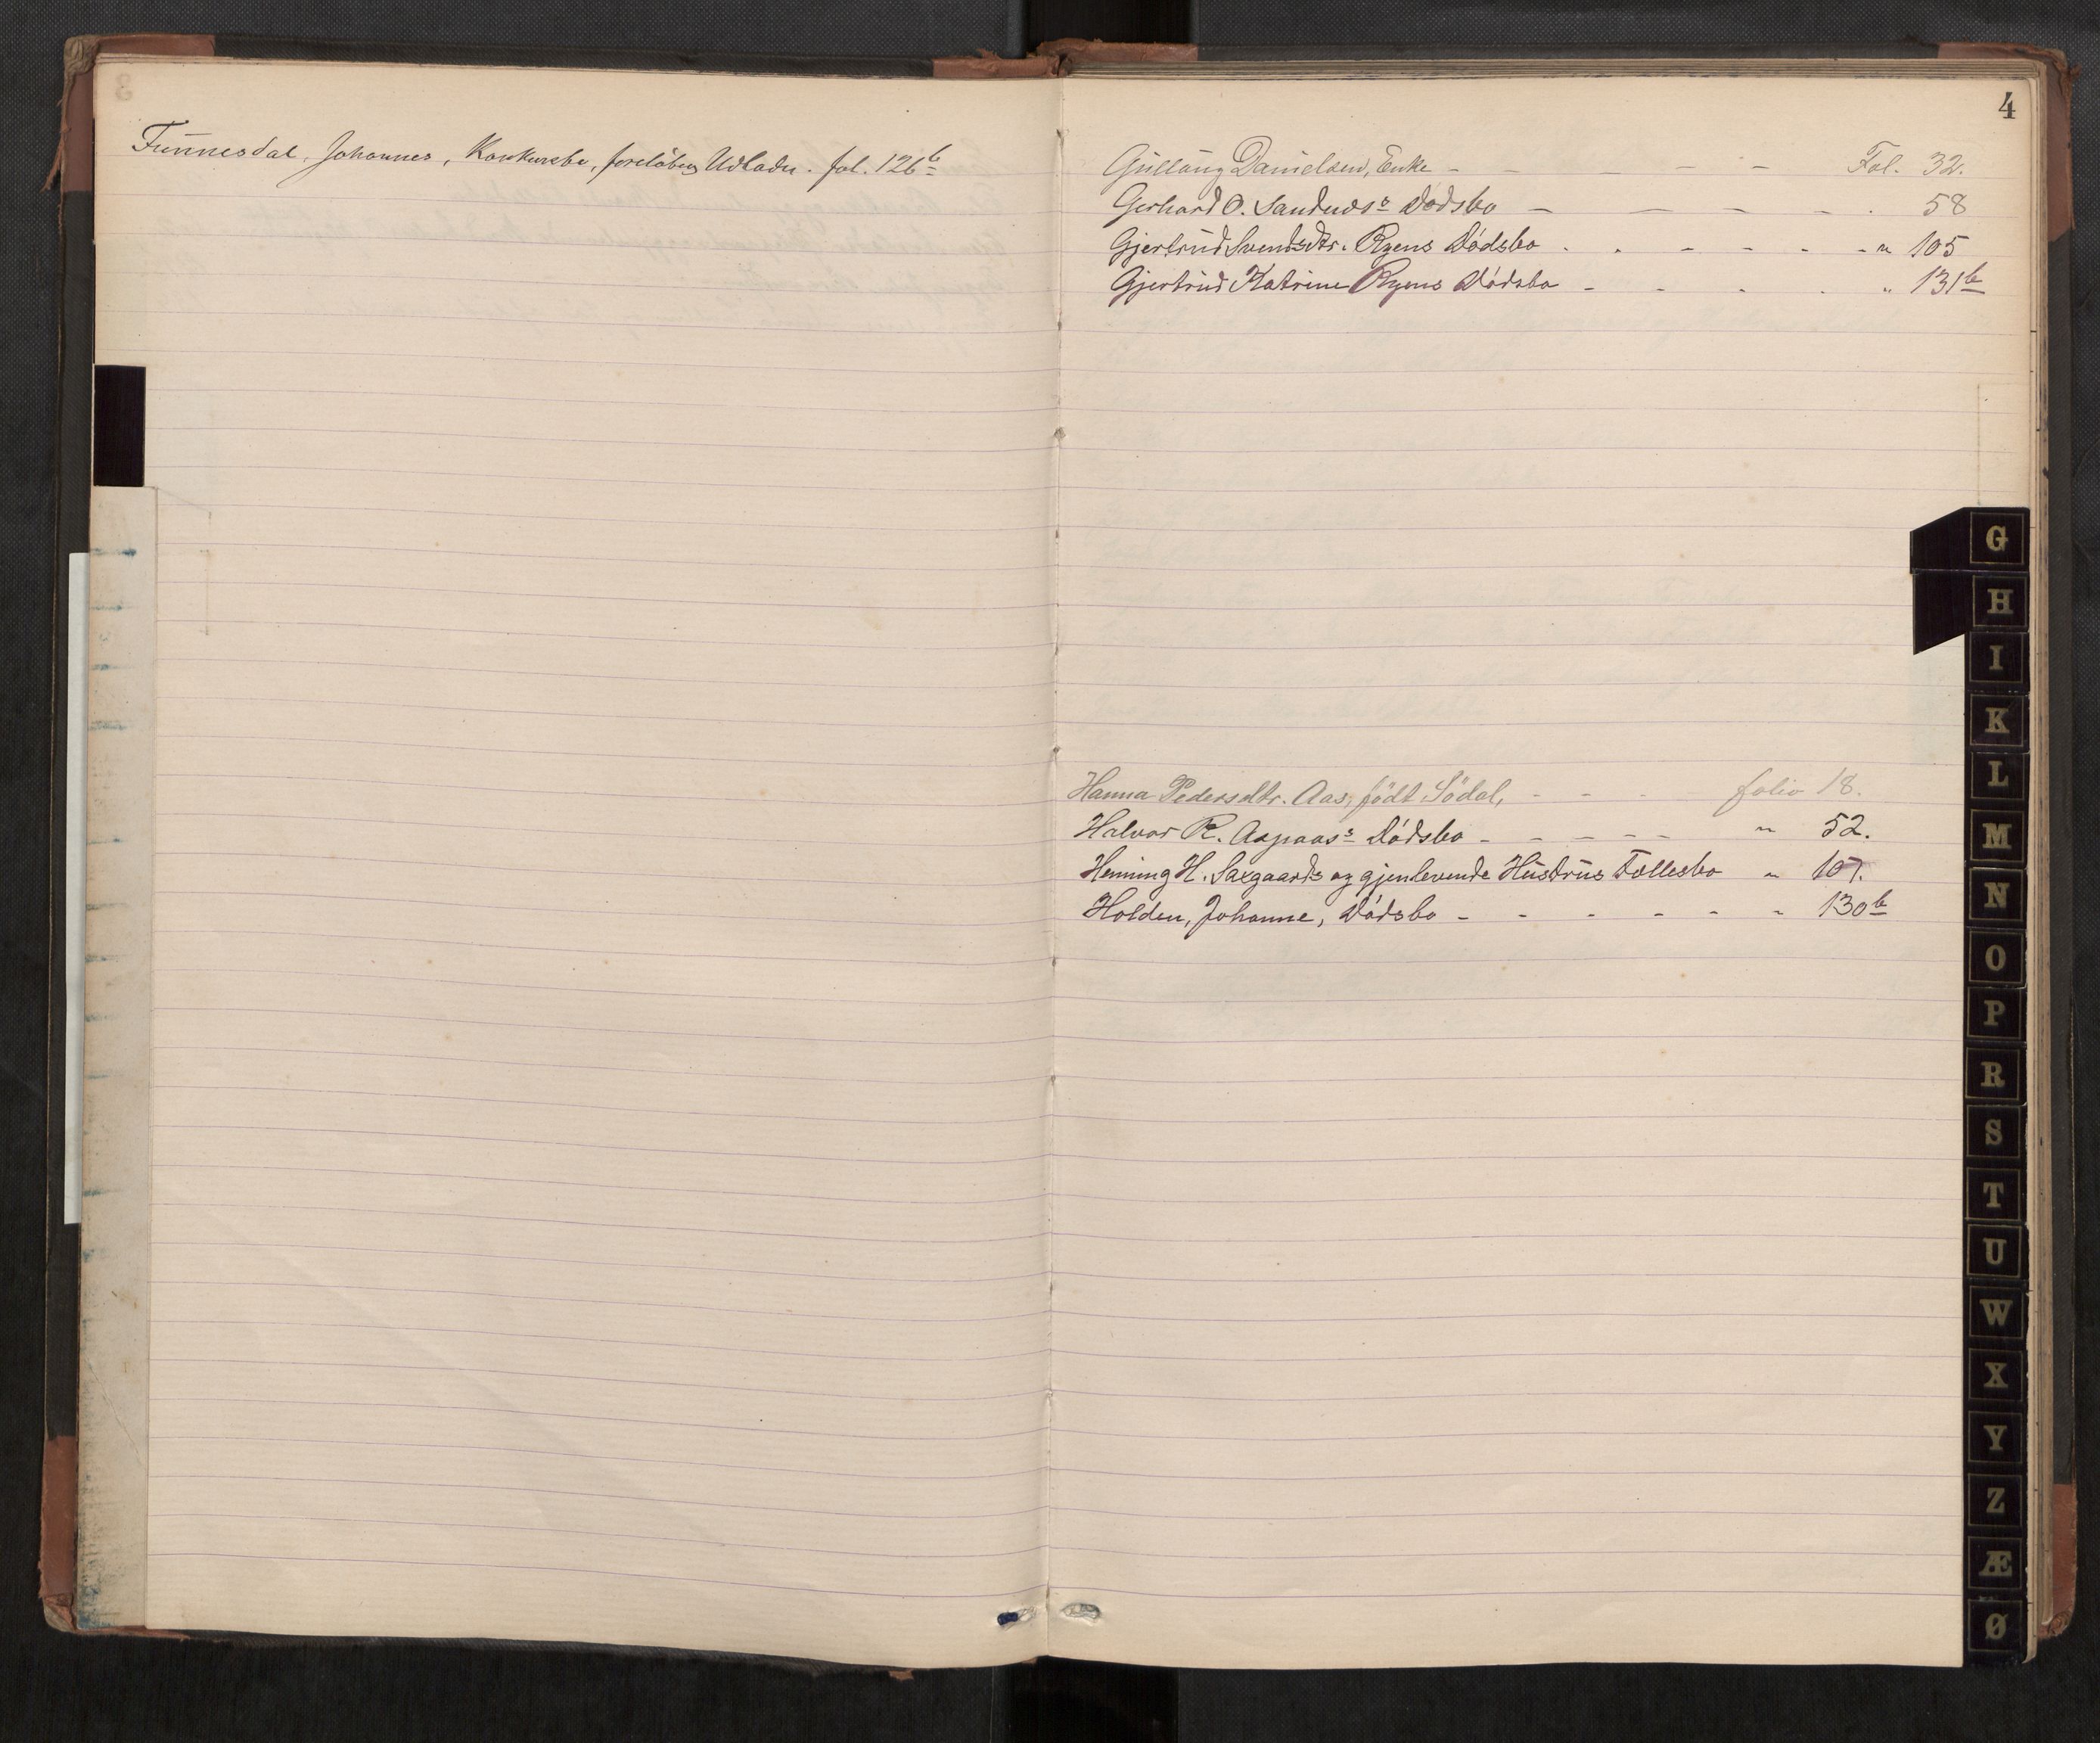 Funnesdal, Johannes, Konkursbo, foreløbig Udladn. fol. 126b
4
Gullaug Danielsen, Enke - - - - - Fol. 32.
Gerhard O. Sandnes's Dødsbo - - - - - 58
Gjertrud Svendsdtr. Ryens Dødsbo - - - - - - " 105
Gjertrud Katrine Ryens Dødsbo - - - - " 131b
Hanna Pedersdtr. Aas, födt Södal, - - - folio 18.
Halvor R. Aspaas's Dødsbo - - - - - " 52.
Henning H. Saxgaards og gjenlevende Hustrus Fællesbo " 107.
Holden, Johanne, Dødsbo - - - - - - 130b
G
H
I
K
L
M
N
O
P
R
S
T
U
W
X
Y
Z
Æ
Ø